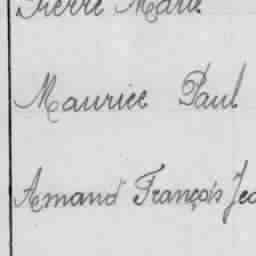 Pierre Marie
Maurice Paul
Armand François Jea